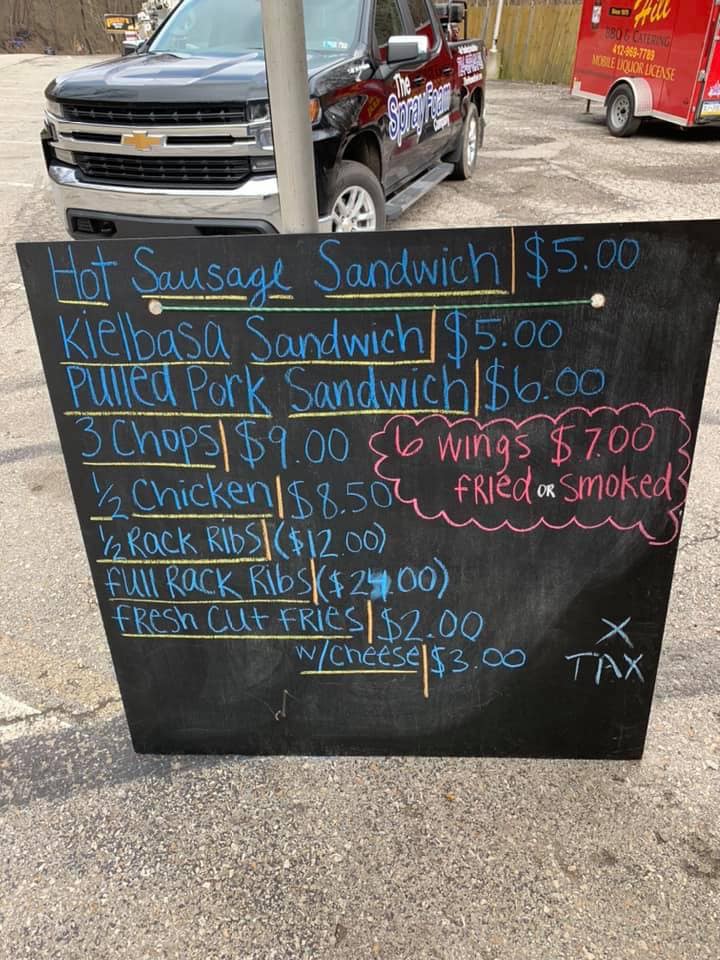 Hill
BBQ & CATERING
412-969-7789
MOBILE LIQUOR LICENSE
The
Spray Foam
Hot Sausage Sandwich | $5.00
Kielbasa Sandwich | $5.00
Pulled Pork Sandwich | $6.00
3 Chops | $9.00
6 wings $7.00
fRied OR smoked
1/2 Chicken | $8.50
1/2 Rack Ribs | ($12.00)
full Rack Ribs | ($24.00)
fResh Cut fRies | $2.00
w/cheese | $3.00
X
TAX